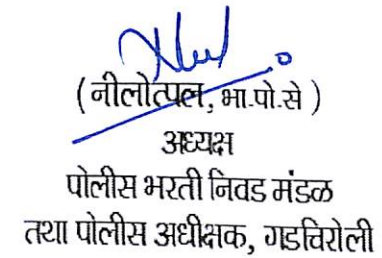 ( नीलोत्पल, भा.पो.से )
अध्यक्ष
पोलीस भरती निवड मंडळ
तथा पोलीस अधीक्षक, गडचिरोली